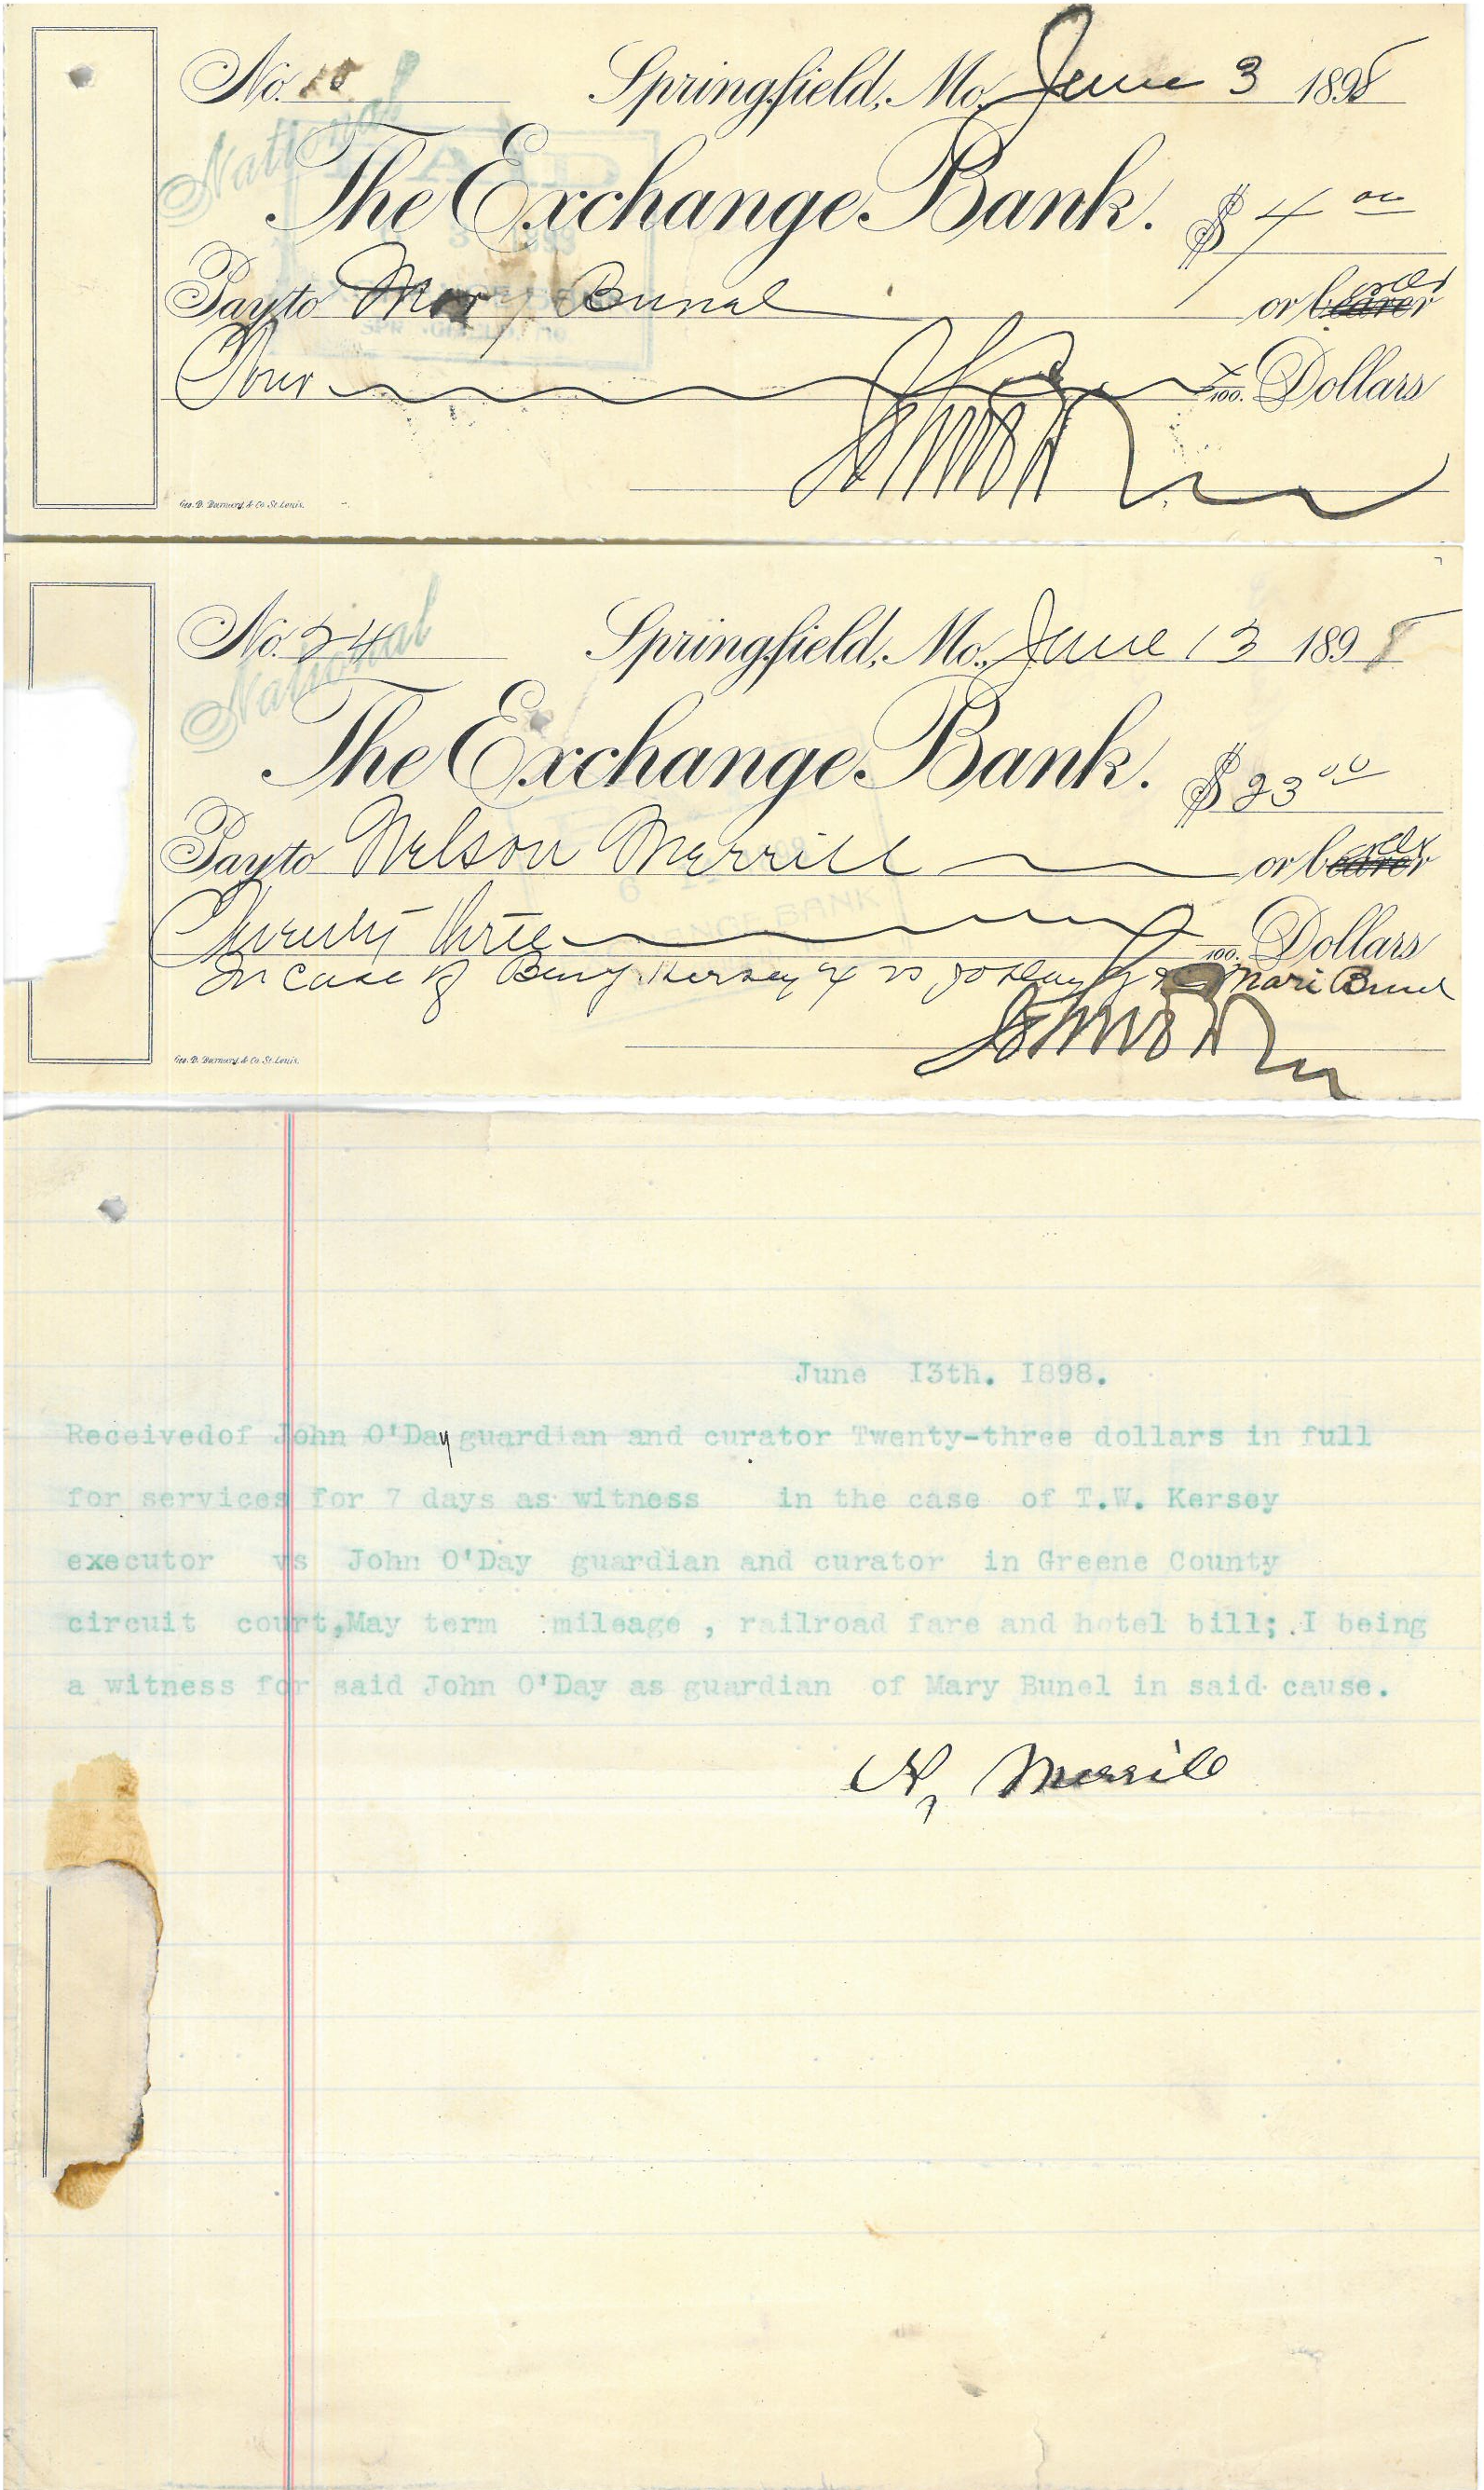 No. 18 Springfield, Mo. June 3 1898
National
PAID
The Exchange Bank. $ 4 00
Pay to Mary Bunal or bearer order
SPRINGFIELD, MO
Four /100. Dollars
John O'Day
Geo. D. Barnard & Co. St. Louis.
No. 24 Springfield, Mo., June 13 1898
National
The Exchange Bank. $ 23 00
Pay to Nelson Merrill or bearer order
EXCHANGE BANK
Twenty three /100. Dollars
In Case of Benj. Kersey Ex vs Jo ODay Mari Bunel
John O'Day
Geo. D. Barnard & Co. St. Louis.
June I3th. I898.
Receivedof John O'Day guardian and curator Twenty-three dollars in full
for services for 7 days as witness in the case of T.W. Kersey
executor vs John O'Day guardian and curator in Greene County
circuit court,May term mileage , railroad fare and hotel bill; I being
a witness for said John O'Day as guardian of Mary Bunel in said cause.
N, Merrill